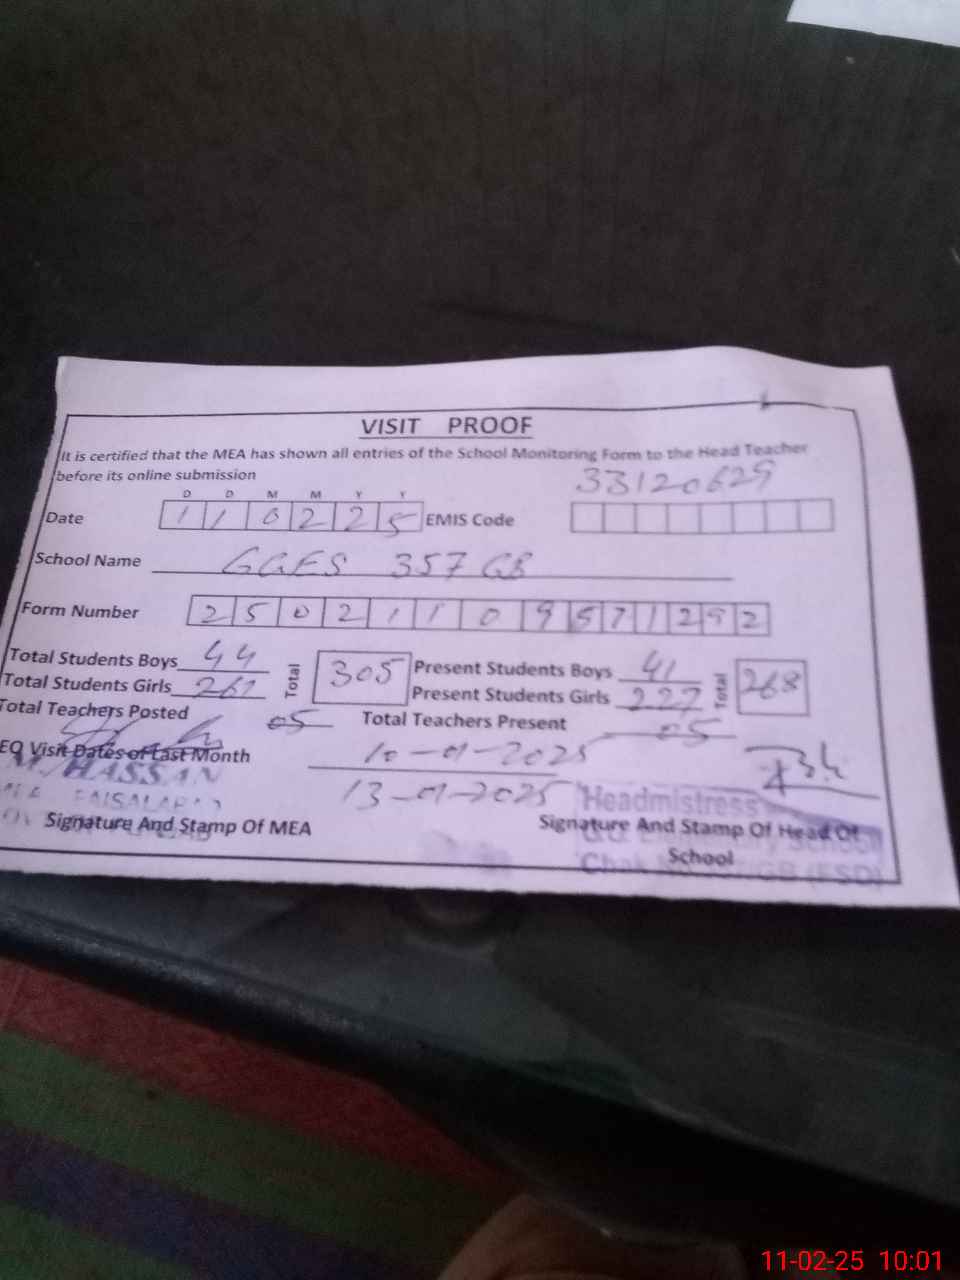 VISIT PROOF
It is certified that the MEA has shown all entries of the School Monitoring Form to the Head Teacher
before its online submission
33120629
D D M M Y Y
Date 1 1 0 2 2 5 EMIS Code
School Name GGES 357 GB
Form Number 2 5 0 2 1 1 0 9 5 7 1 2 9 2
Total Students Boys 44 Total 305 Present Students Boys 41 Total 268
Total Students Girls 261 Present Students Girls 227
Total Teachers Posted 05 Total Teachers Present 05
EO Visit Dates of Last Month 10-01-2025
HASSAN 13-01-2025 Headmistress
FAISALABAD
Signature And Stamp Of MEA Signature And Stamp Of Head Of
School
Chak
11-02-25 10:01